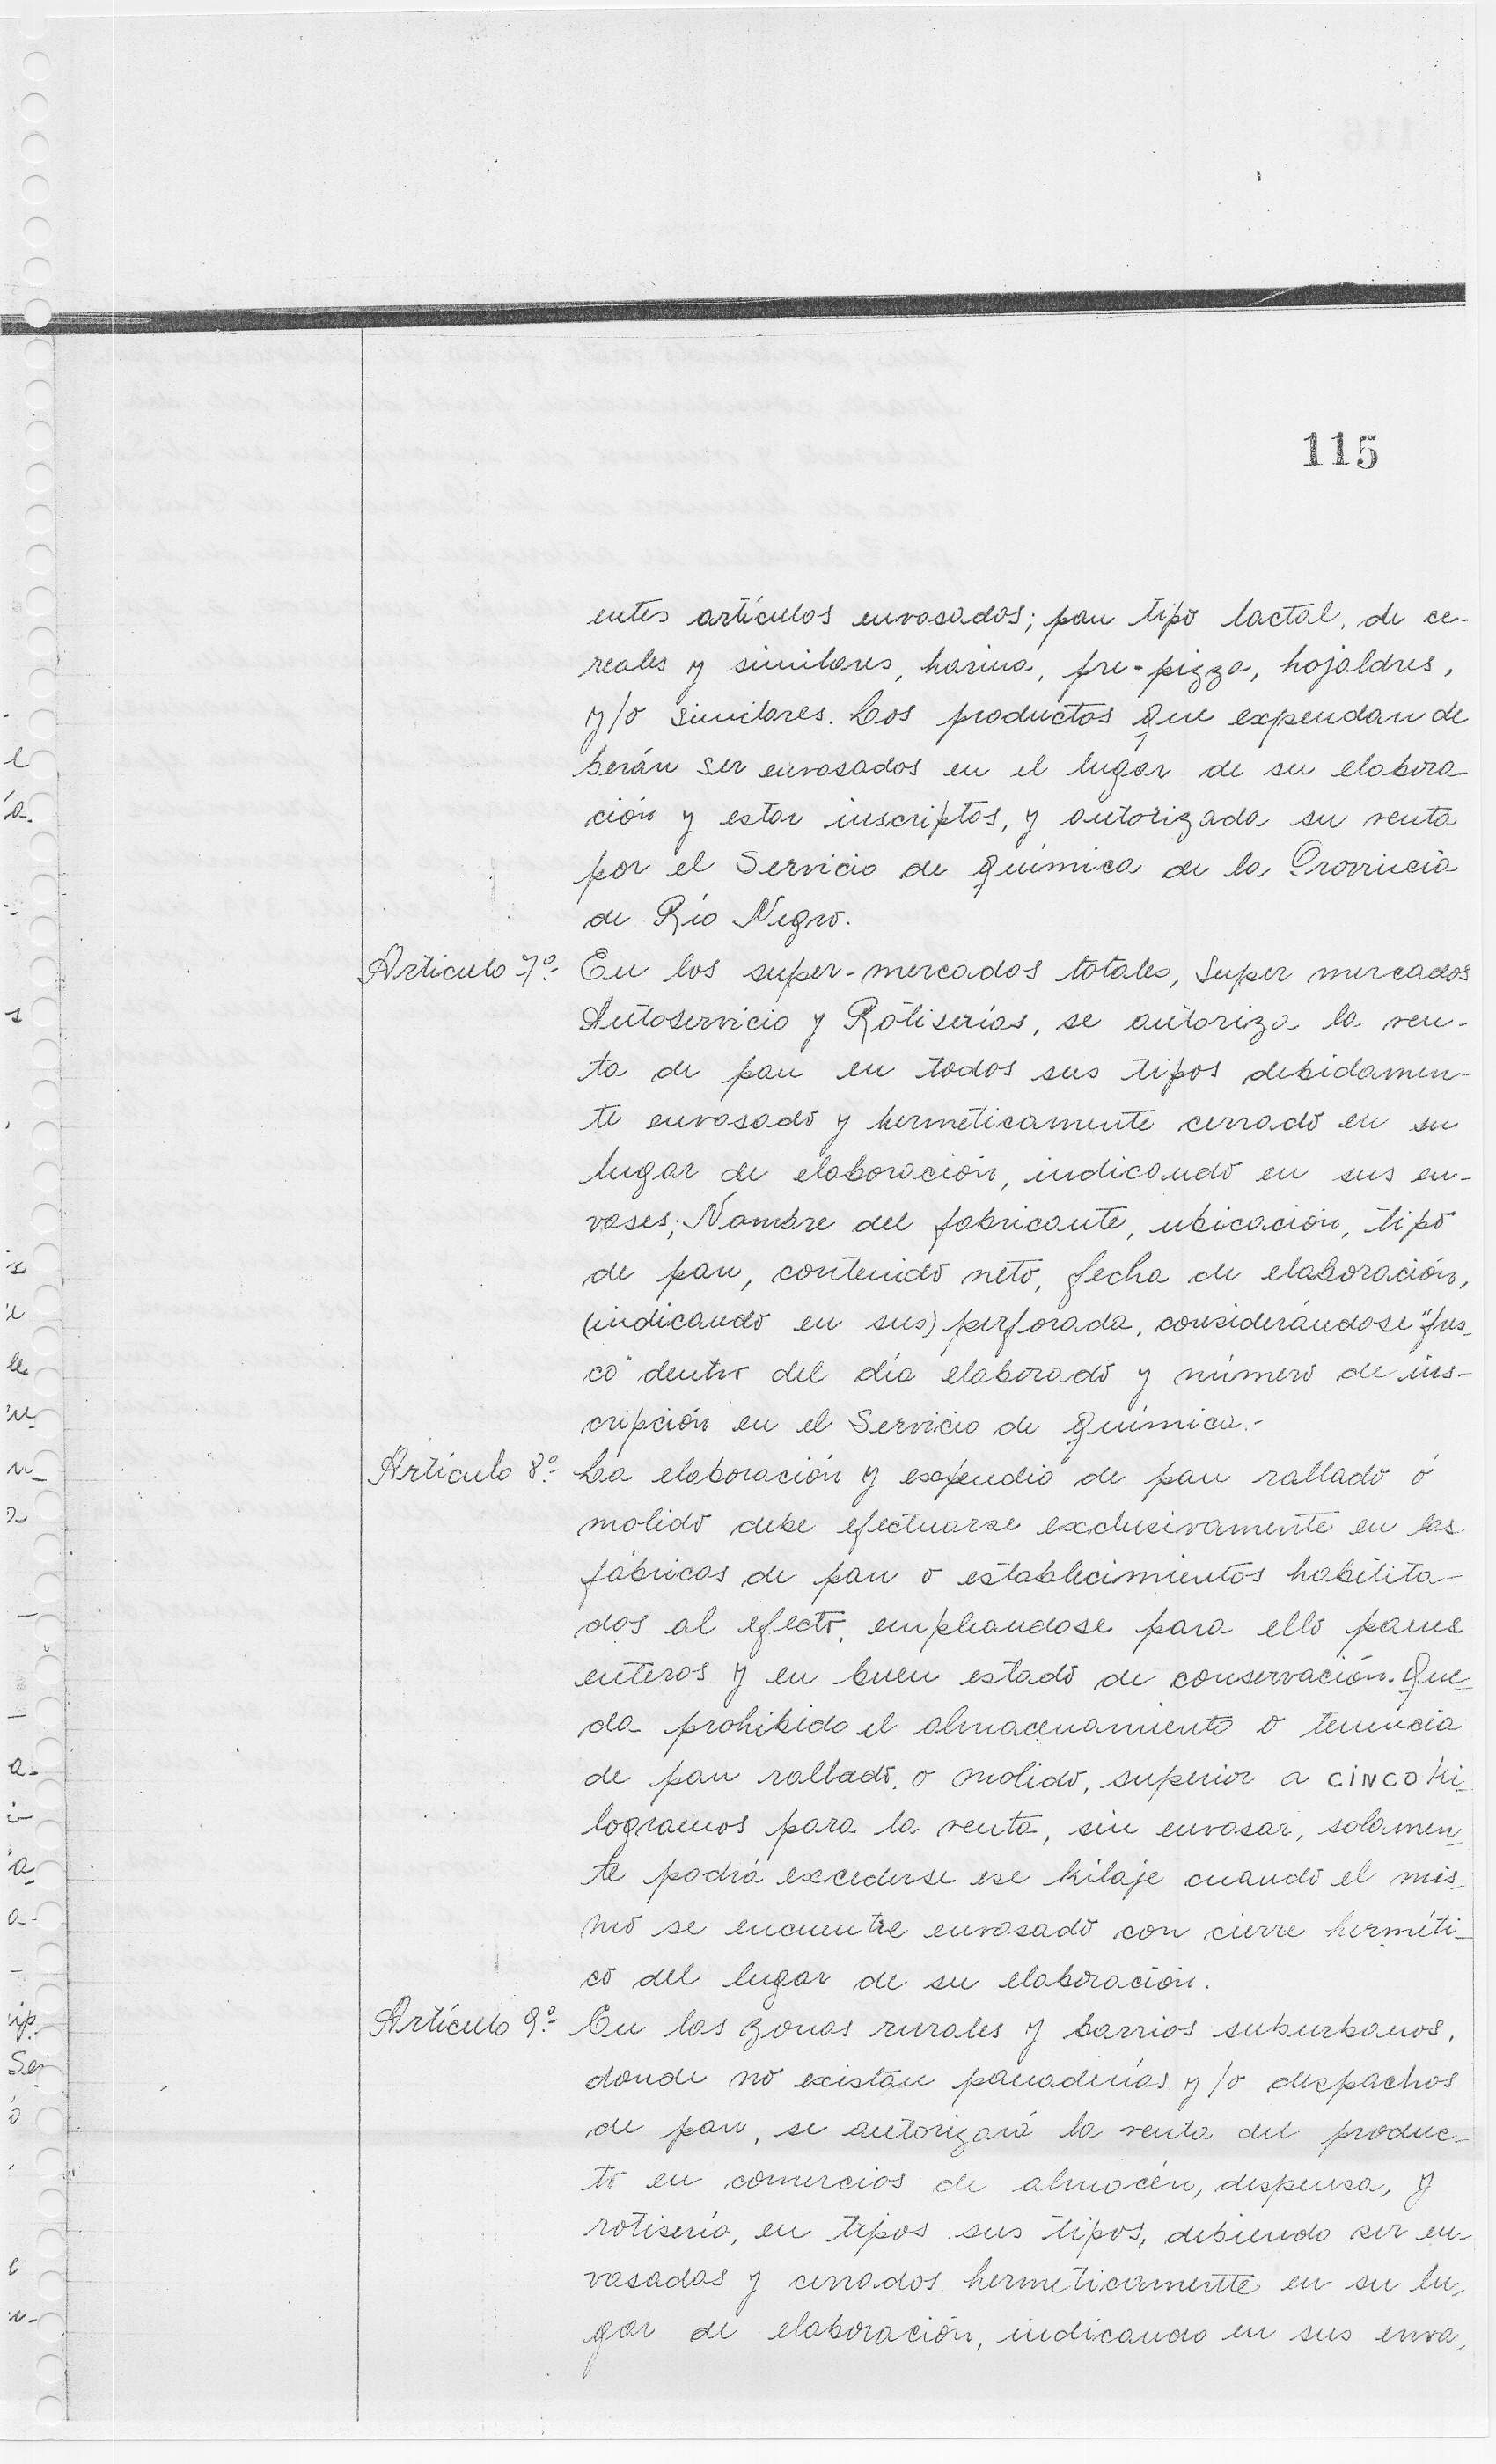 115
entes artículos envasados; pan tipo lactal, de ce-
reales y similares, harina, pre-pizza, hojaldres,
y/o similares. Los productos que expendan de
berán ser envasados en el lugar de su elabora
ción y estar inscriptos, y autorizada su venta
por el Servicio de Química de la Provincia
de Río Negro.
Artículo 7º- En los super-mercados totales, Super mercados
Autoservicio y Rotiserías, se autoriza la ven-
ta de pan en todos sus tipos debidamen-
te envasado y herméticamente cerrado en su
lugar de elaboración, indicando en sus en-
vases; Nombre del fabricante, ubicación, tipo
de pan, contenido neto, fecha de elaboración,
(indicando en sus) perforada, considerándose "fres_
co" dentro del día elaborado y número de ins-
cripción en el Servicio de Química.-
Artículo 8º- La elaboración y expendio de pan rallado ó
molido debe efectuarse exclusivamente en las
fábricas de pan o establecimientos habilita-
dos al efecto, empleandose para ello panes
enteros y en buen estado de conservación. Que_
da prohibido el almacenamiento o tenencia
de pan rallado, o molido, superior a CINCO Ki_
logramos para la venta, sin envasar, solamen_
te podrá excederse ese kilaje cuando el mis_
mo se encuentre envasado con cierre herméti_
co del lugar de su elaboración.
Artículo 9º- En las zonas rurales y barrios suburbanos,
donde no existan panaderías y/o despachos
de pan, se autorizará la venta del produc_
to en comercios de almacén, despensa, y
rotisería, en tipos sus tipos, debiendo ser en-
vasadas y cerrados hermeticamentte en su lu_
gar de elaboración, indicando en sus enva_